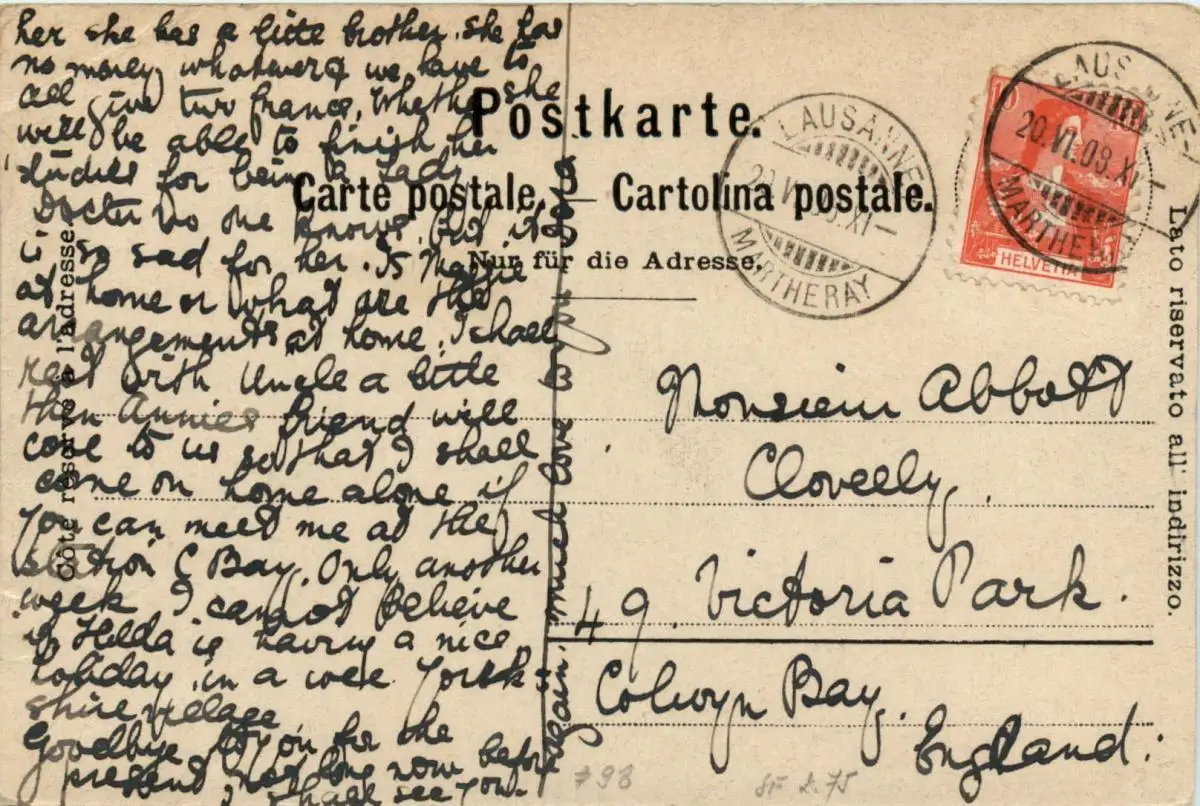 her she has a little brother. she has
no money whatever & we have to
all give two francs. Whether she
will be able to finish her
studies for being a Lady
Doctor no one knows. but it
is so sad for her. Is Maggie
at home or what are the
arrangements at home. I shall
rest with Uncle a little
then Annie's friend will
come to us so that I shall
come on home alone if
you can meet me at the
station C Bay. Only another
week I cannot believe
it Hilda is having a nice
holiday in a wee York
shire village
Goodbye for the
present not long now before
I shall see you
again. much love to
Postkarte.
Carte postale. — Cartolina postale.
Nur für die Adresse.
Côté réservé à l'adresse.
Lato riservato all' indirizzo.
LAUSANNE
20.VI.08.XI—
MARTHERAY
LAUSANNE
20.VI.08.XI—
MARTHERAY
10
HELVETIA
Monsieur Abbott
Clovelly.
49. Victoria Park.
Colwyn Bay.
England.
#98
SF 2.75